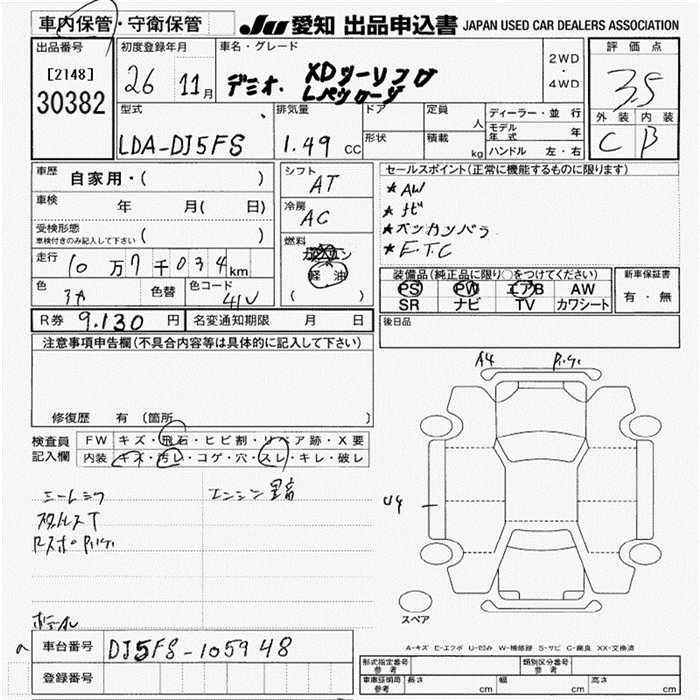 車内保管・守衛保管 JU 愛知 出品申込書 JAPAN USED CAR DEALERS ASSOCIATION
出品番号 初度登録年月 車名・グレード 2WD・4WD 評価点
[2148] 30382 26 11月 デミオ XDツーリング Lパッケージ 3.5
型式 排気量 ドア 定員 人 ディーラー・並行 外装 内装
LDA-DJ5FS 1.49 CC 形状 積載 kg モデル年式 年 C B
ハンドル 左・右
車歴 自家用・( ) シフト AT セールスポイント(正常に機能するものに限ります)
車検 年 月( 日) 冷房 AC ★AW
受検形態 ( ) ★ナビ
車検付きのみ記入して下さい ★バックカメラ
走行 10万7千034km 燃料 ガソリン 軽油 ( ) ★ETC
色 色替 色コード 41V
装備品(純正品に限り○をつけてください) 新車保証書
PS PW エアB AW 有・無
SR ナビ TV カワシート
R券 9.130円 名変通知期限 月 日 後日品
注意事項申告欄(不具合内容等は具体的に記入して下さい)
修復歴 有 (箇所 )
検査員記入欄 FW キズ・飛石・ヒビ割・リペア跡・X要
内装 キズ・汚レ・コゲ・穴・スレ・キレ・破レ
A4
U4
スペア
A-キズ E-エクボ U-凹み W-補修跡 S-サビ C-腐食 XX-交換済
車台番号 DJ5FS-105948
登録番号
形式指定番号 参考 類別区分番号 参考
車車証明局 参考 長さ cm 幅 cm 高さ cm